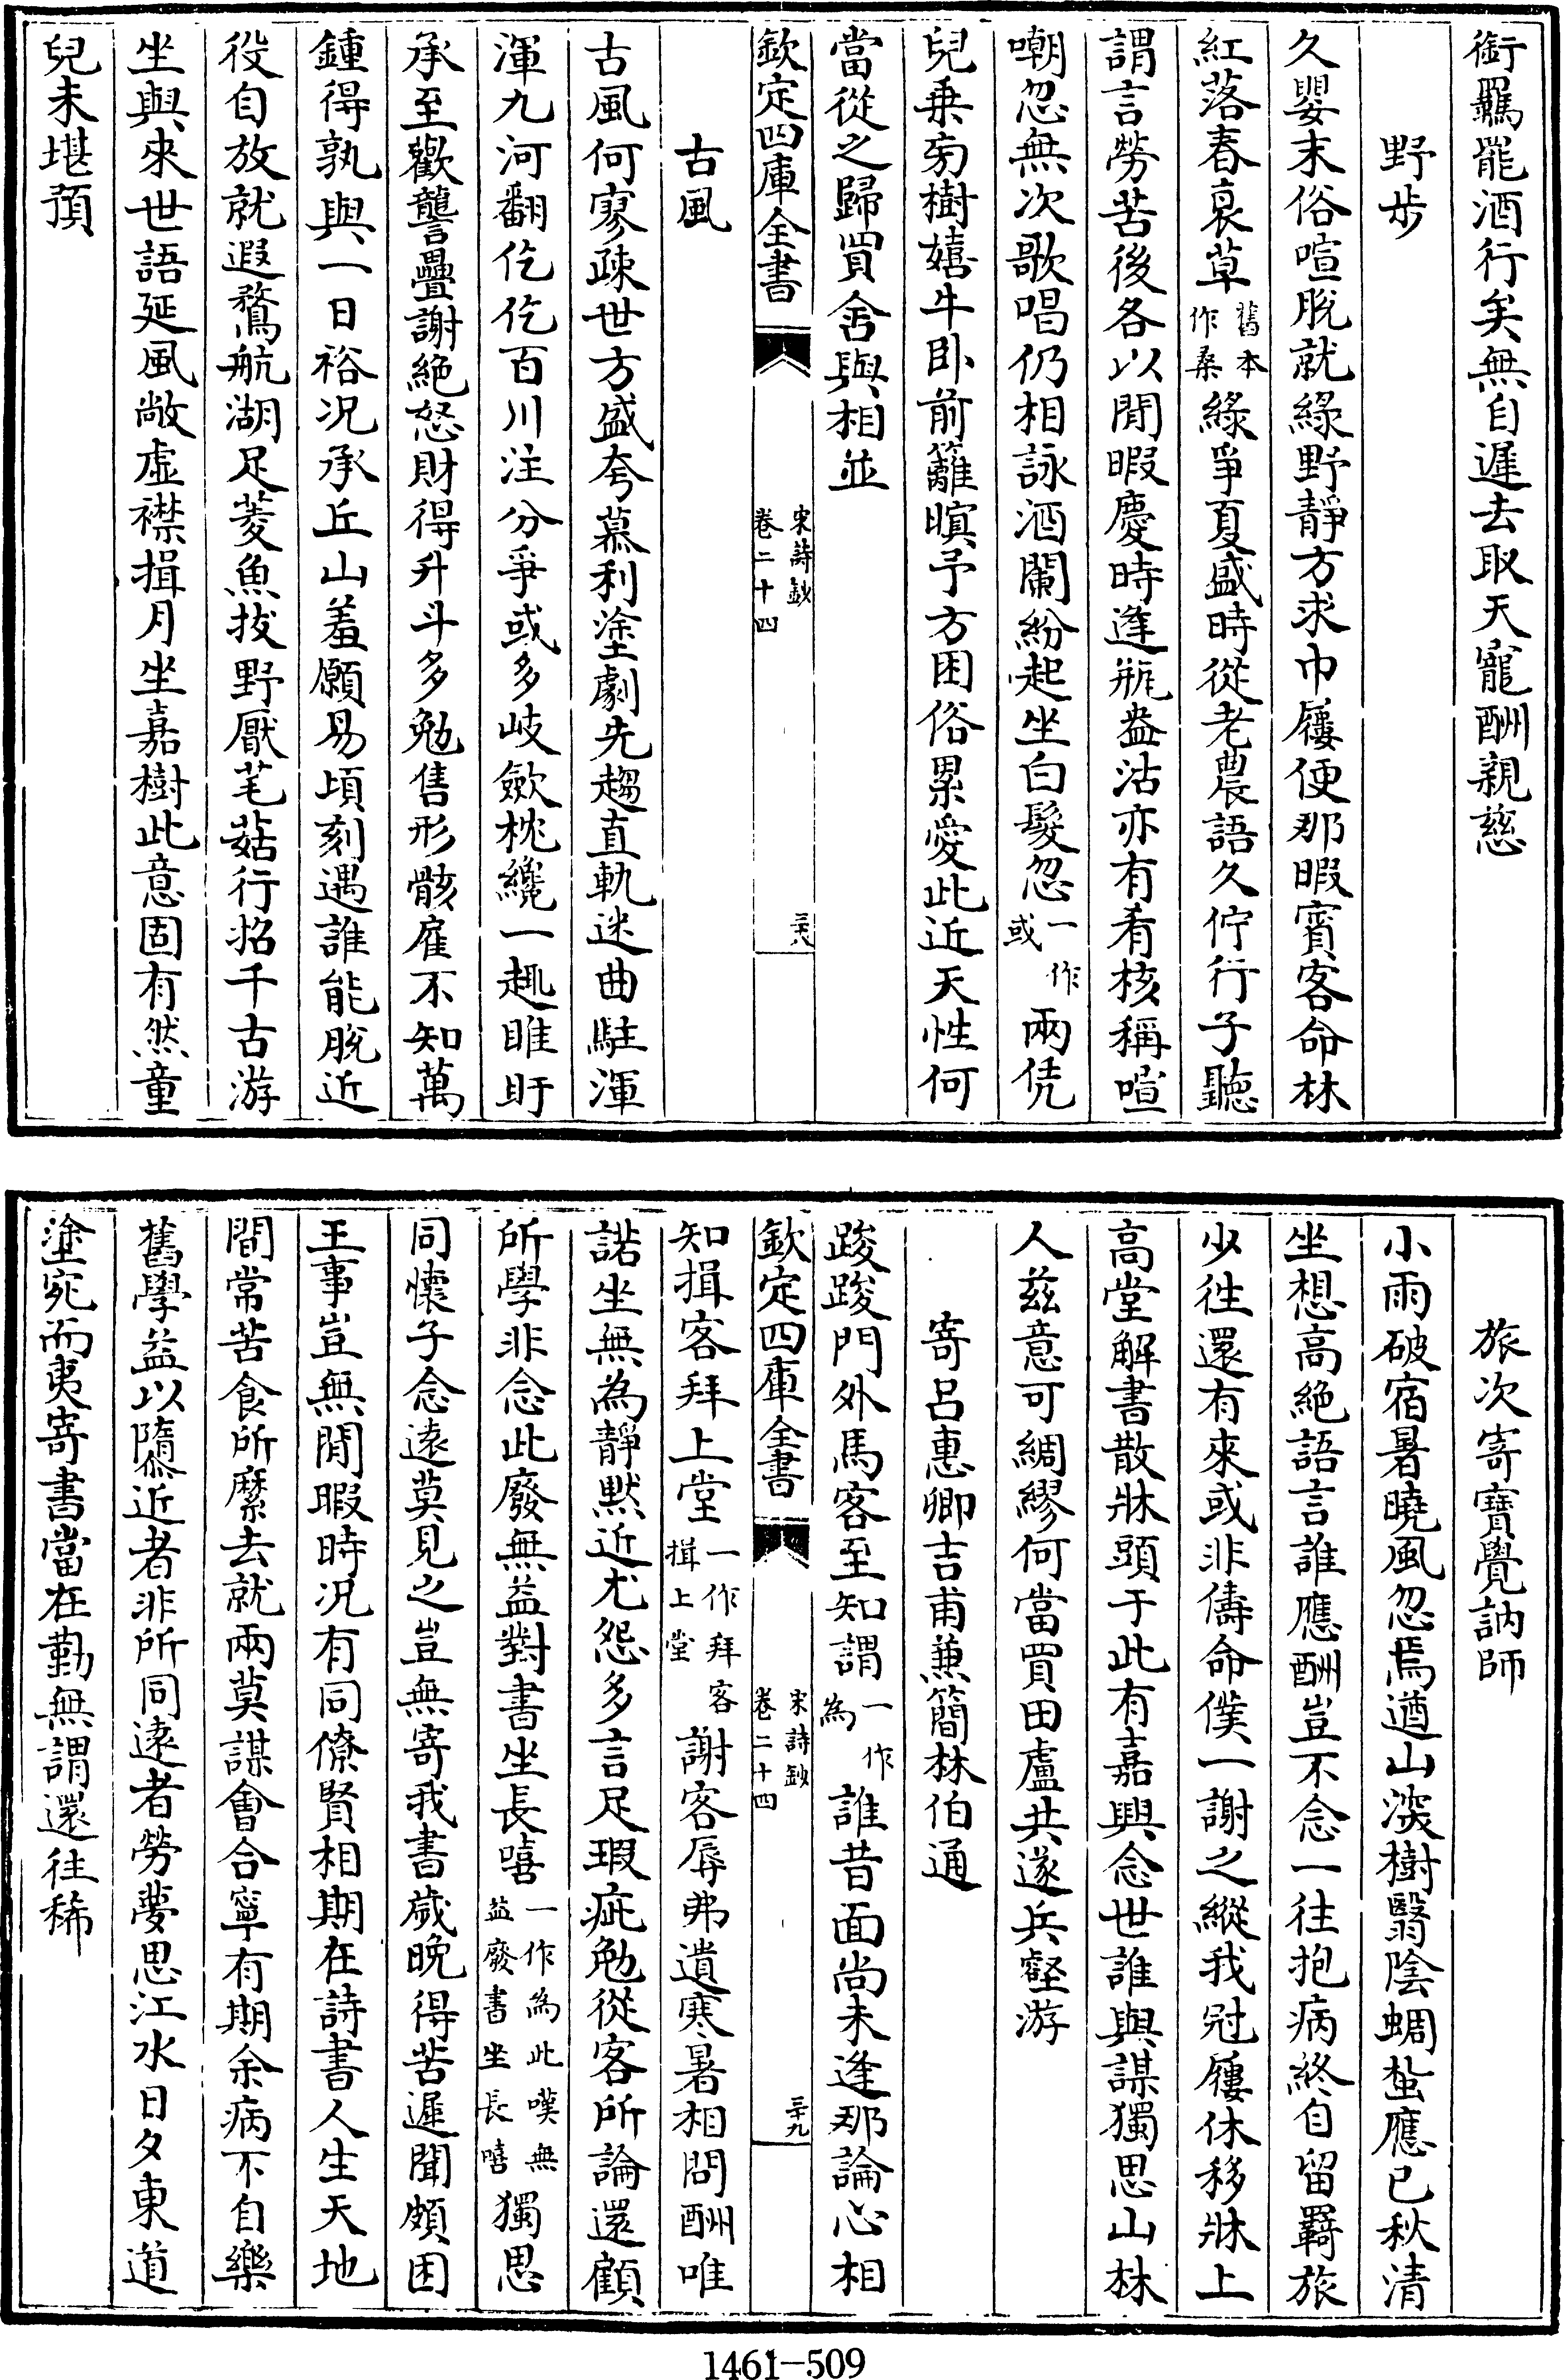 銜羈罷酒行矣無自遲去取天寵酬親慈
野步
久嬰末俗喧脫就緣野靜方求巾屨便那暇賓客命林
紅落春裒草舊本作桑緣爭夏盛時從老農語久佇行子聽
謂言勞苦後各以閒暇慶時逢瓶盎沽亦有肴核稱喧
嘲忽無次歌唱仍相詠酒闌紛起坐白髮忽一作或兩凭
兒乗旁樹嬉牛卧前籬暝予方困俗累愛此近天性何
當從之歸買舍與相並
欽定四庫全書 宋詩鈔 卷二十四 三十八
古風
古風何寥疎世方盛夸慕利塗劇先趨直軌迷曲駐渾
渾九河翻仡仡百川注分爭或多岐歛枕纔一趣睢盱
承至歡讋疊謝絕怒財得升斗多勉售形骸雇不知萬
鍾得孰與一日裕况承丘山羞願易頃刻遇誰能脫近
役自放就遐騖航湖足菱魚拔野厭芼菇行招千古游
坐與來世語延風敞虛襟揖月坐嘉樹此意固有然童
兒未堪預
旅次寄寶覺訥師
小雨破宿暑曉風忽焉遒山淡樹翳陰蜩蛩應已秋清
坐想高絕語言誰應酬豈不念一往抱病終自留羇旅
少往還有來或非儔命僕一謝之縱我冠屨休移牀上
高堂解書散牀頭于此有嘉興念世誰與謀獨思山林
人茲意可綢繆何當買田盧共遂兵壑游
寄呂惠卿吉甫兼簡林伯通
踆踆門外馬客至知謂一作為誰昔面尚未逢那論心相
知揖客拜上堂一作拜客揖上堂謝客辱弗遺寒暑相問酬唯
諾坐無為靜黙近尤怨多言足瑕疵勉從客所論還顧
所學非念此廢無益對書坐長嘻一作為此嘆無益廢書坐長嘻獨思
同懷子念遠莫見之豈無寄我書歲晚得苦遲聞頗困
王事豈無閒暇時况有同僚賢相期在詩書人生天地
間常苦食所縻去就兩莫謀會合寧有期余病不自樂
舊學益以隳近者非所同遠者勞夢思江水日夕東道
塗宛而夷寄書當在勤無謂還往稀
欽定四庫全書 宋詩鈔 卷二十四 三十九
1461—509